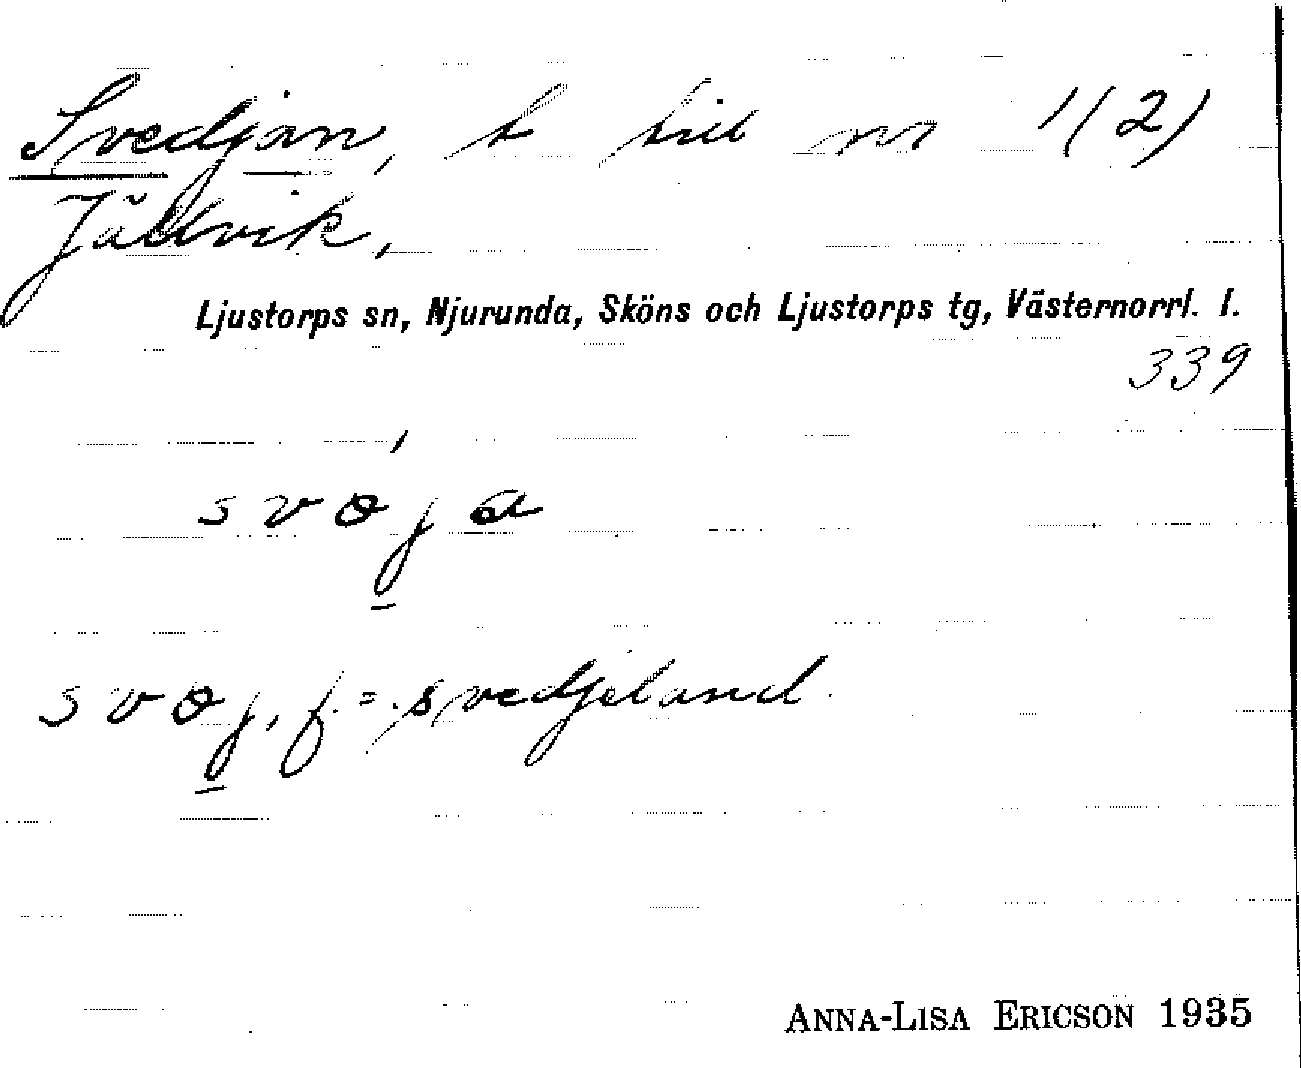 Svedjan, t till nr 1(2)
Jällvik,
Ljustorps sn, Njurunda, Sköns och Ljustorps tg, Västernorrl. l.
339
svøja
svøj, f. = svedjeland.
ANNA-LISA ERICSON 1935